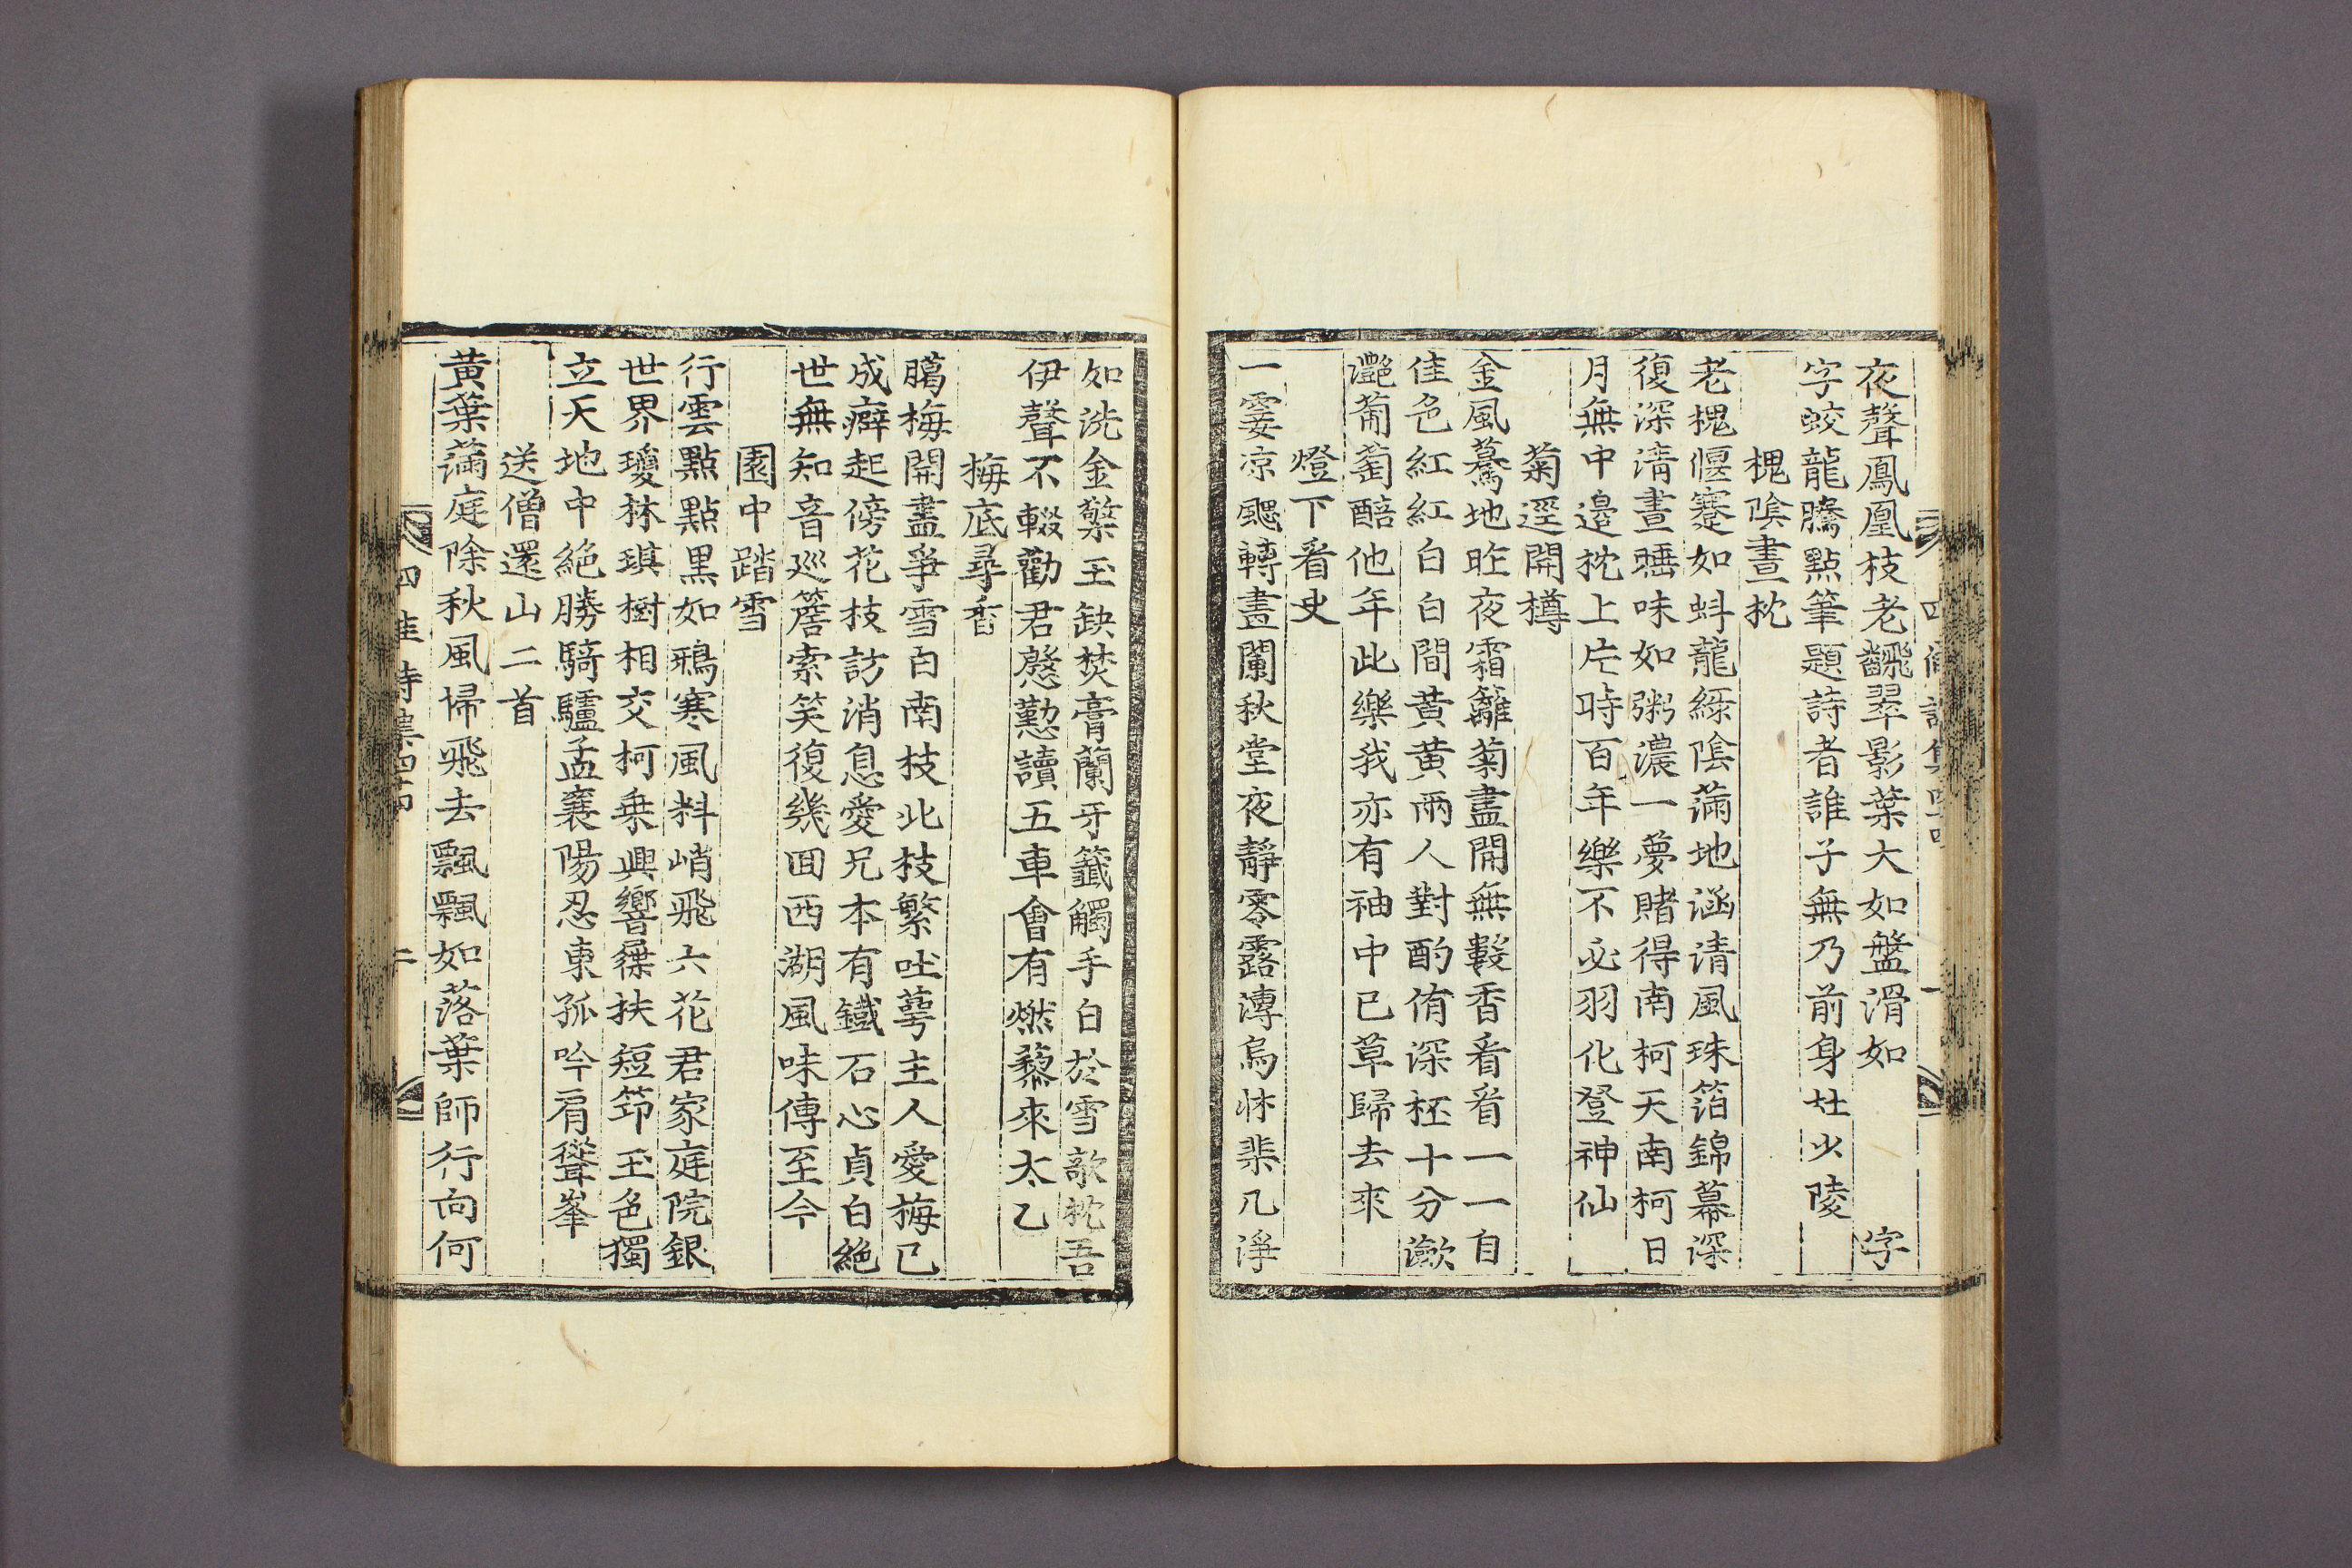 夜聲鳳凰枝老翻翠影葉大如盤滑如 字
字蛟龍騰點筆題詩者誰子無乃前身杜少陵
槐陰晝枕
老槐偃蹇如蚪龍綠陰滿地涵清風珠箔錦幕深
復深淸晝睡味如粥濃一夢賭得南柯天南柯日
月無中邊枕上片時百年樂不必羽化登神仙
菊逕開樽
金風驀地昨夜霜籬菊盡開無數香看看一一自
佳色紅紅白白間黃黃兩人對酌侑深杯十分瀲
灔葡萄醅他年此樂我亦有袖中已草歸去來
燈下看史
一霎凉飍轉畫闌秋堂夜靜零露漙烏皮棐几淨
如洗金檠玉缺焚膏蘭牙籤觸手白於雪欹枕吾
伊聲不輟勸君慇懃讀五車會有燃藜來太乙
梅底尋香
臈梅開盡爭雪白南枝北枝繁吐萼主人愛梅已
成癖起傍花枝訪消息愛兄本有鐵石心貞白絶
世無知音巡簷索笑復幾囬西湖風味傳至今
園中踏雪
行雲點點黑如鴉寒風料峭飛六花君家庭院銀
世界瓊林琪樹相交柯乗興響屧扶短筇玉色獨
立天地中絶勝騎驢孟襄陽忍凍孤吟肩聳峯
送僧還山二首
黃葉滿庭除秋風掃飛去飄飄如落葉師行向何
四佳詩集 二